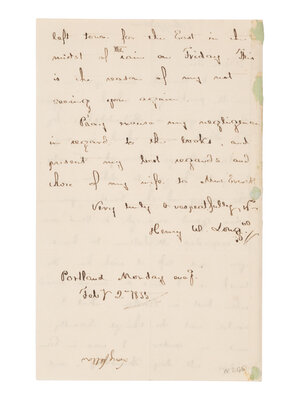 left town for the East in the
midst of the rain on Friday. This
is the reason of my not
seeing you again.
Pray excuse my negligence
in regard to the books, and
present my best regards and
those of my wife to Mrs Everett.
Very truly & respectfully, Yrs
Henry W. Longf
Portland Monday
Feb. 2nd 1835